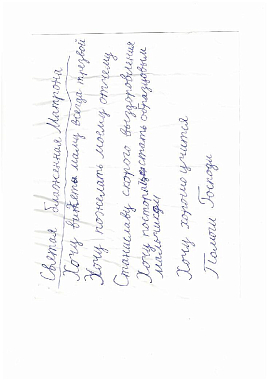 Светая Блаженная Матрона
Хочу видеть маму всегда трезвой
Хочу пожелать моему отчему
Станиславу скорого выздоровления
Хочу постораться стать образцовым
мальчиком
Хочу хорошо учится
Помоги Господи